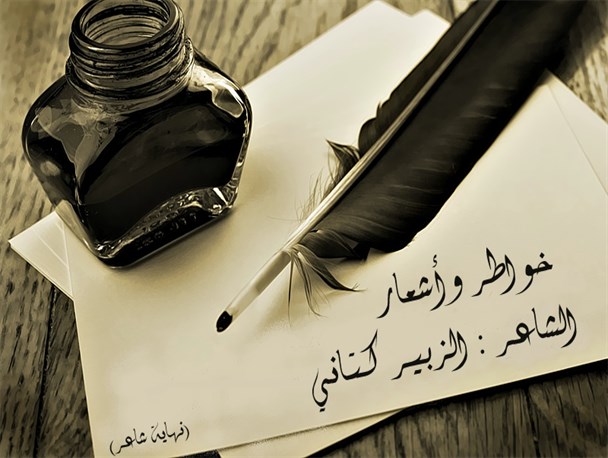 خواطر وأشعار
الشاعر : الزبير كتاني
(نهاية شاعر)